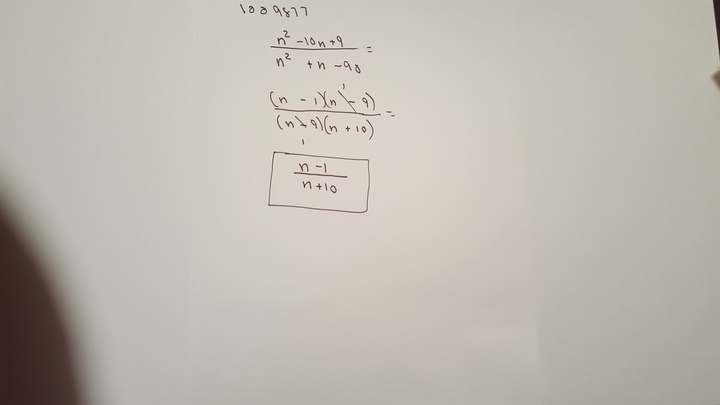 1009877
n² - 10n + 9 =
n² + n - 90
(n - 1)(n - 9) =
(n - 9)(n + 10)
n - 1
n + 10